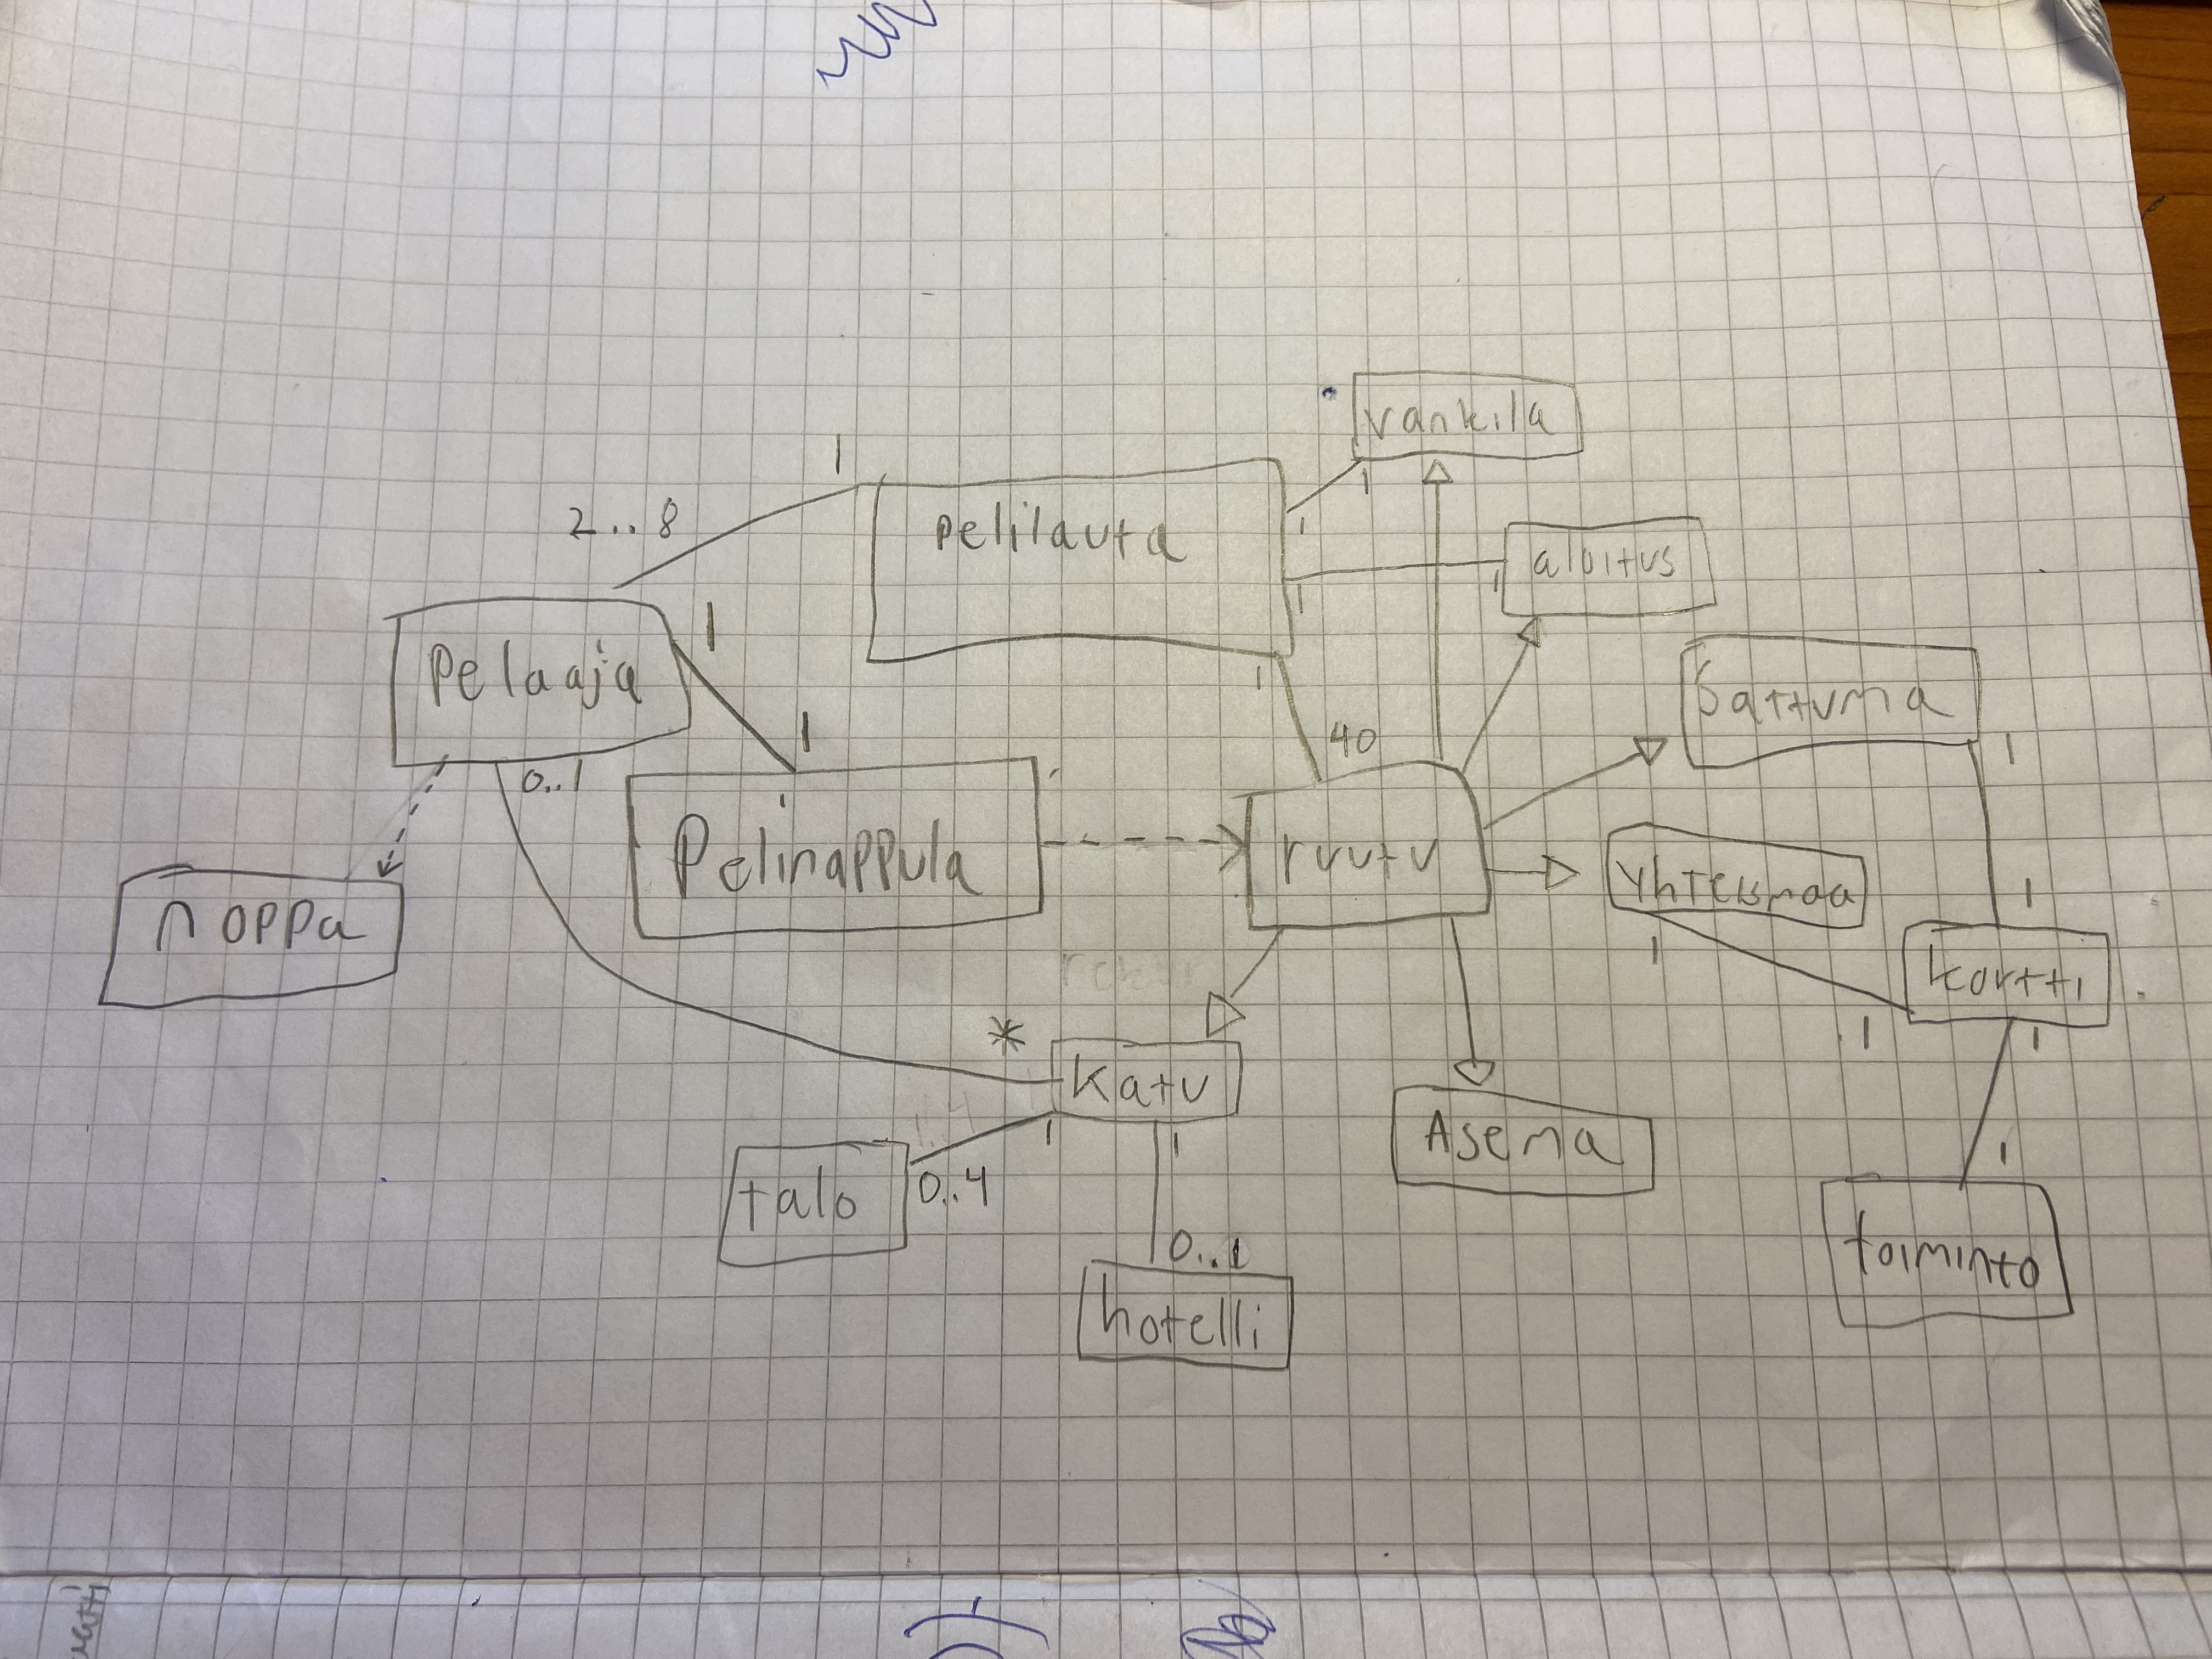 vankila
1
2..8
1
pelilauta
1
1
1
aloitus
1
Pelaaja
1
1
40
Sattuma
1
0..1
Pelinappula
ruutu
Yhteismaa
1
noppa
1
kortti
*
1
1
katu
1
1
Asema
1
talo
0..4
0..1
toiminto
hotelli